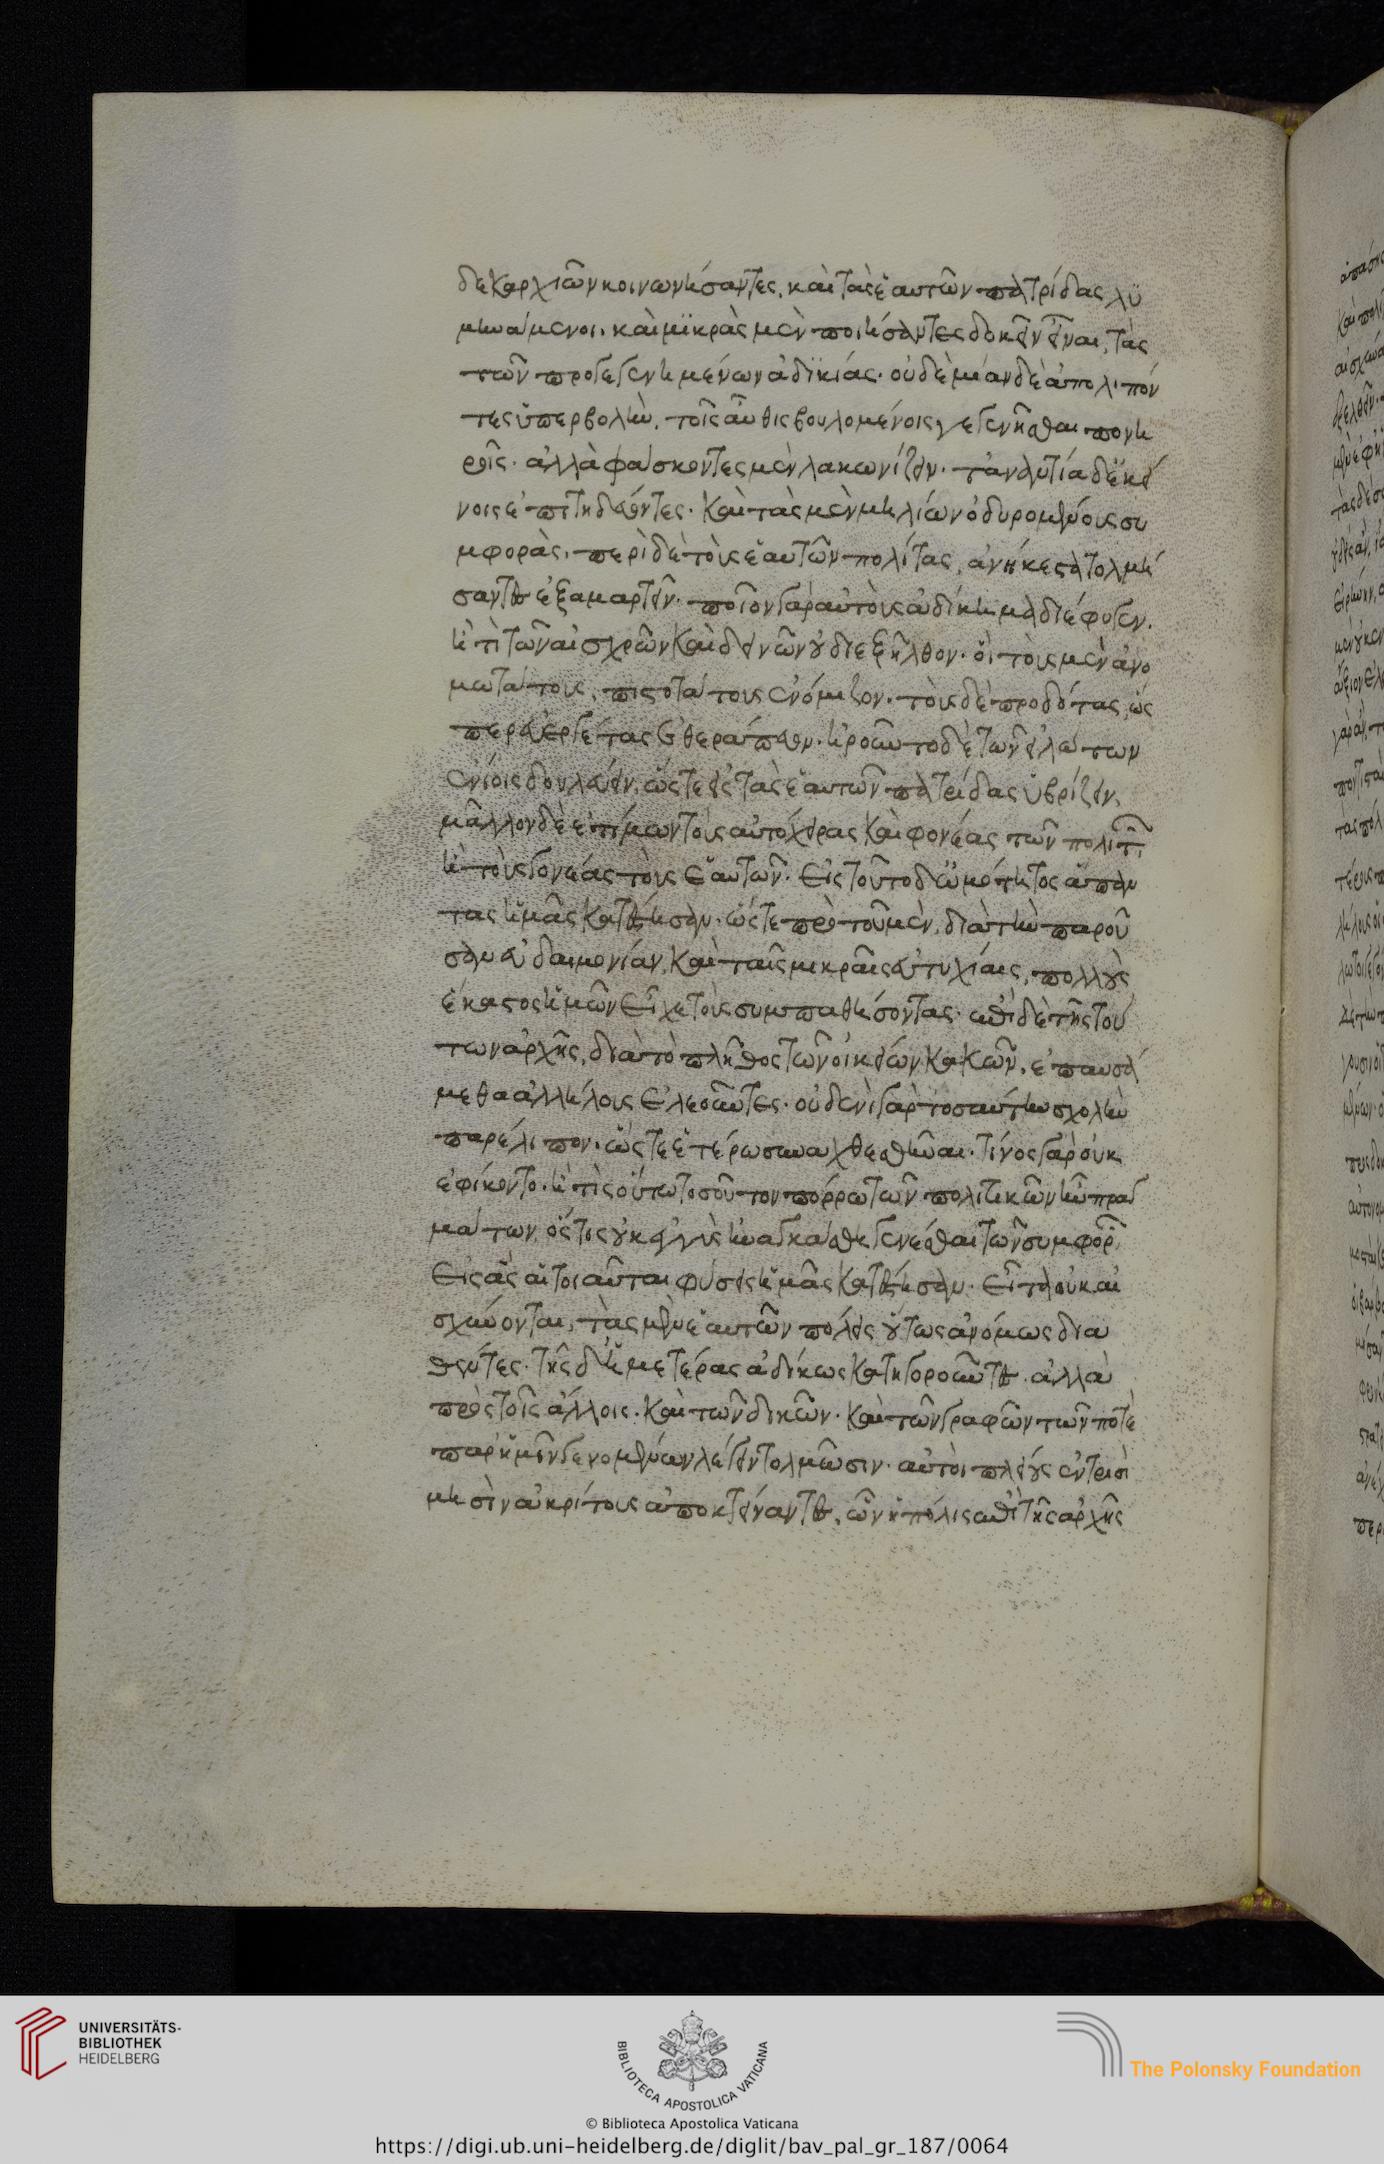 δεκαρχιῶν κοινωνήσαντες, καὶ τὰς ἑαυτῶν πατρίδας λυ
μηνάμενοι. καὶ μϊκρὰς μὲν ποιήσαντες δοκεῖν εἶναι, τὰς
τῶν προγεγενημένων ἀδϊκίας. οὐδεμίαν δὲ ἀπολιπόν
τες ὑπερβολὴν, τοῖς αὖθις βουλομένοις γεγενῆσθαι πονη
ροῖς. ἀλλὰ φάσκοντες μὲν λακωνίζειν. τἀναντία δ' ἐκεί
νοις ἐπιτηδεύοντες. καὶ τὰς μὲν μηλίων ὀδυρομένους συ
μφορὰς. περὶ δὲ τοὺς ἑαυτῶν πολίτας, ἀνήκεστα τολμή
σαντες ἐξαμαρτεῖν. ποῖον γὰρ αὐτοὺς ἀδίκημα διέφυγεν.
ἢ τὶ τῶν αἰσχρῶν καὶ δεινῶν οὐ διεξῆλθον. οἳ τοὺς μὲν ἀνο
μωτάτους, πιστοτάτους ἐνόμιζον. τοὺς δὲ προδότας, ὡς
περ εὐεργέτας ἐθεράπευον. ἡροῦντο δὲ τῶν εἱλώτων
ἐνίοις δουλεύειν, ὥστε εἰς τὰς ἑαυτῶν πατρίδας ὑβρίζειν,
μᾶλλον δὲ ἐτίμων τοὺς αὐτόχειρας καὶ φονέας τῶν πολιτ
ἢ τοὺς γονέας τοὺς ἑαυτῶν. εἰς τοῦτο δ' ὠμότητος ἅπαν
τας ἡμᾶς κατέστησαν. ὥστε πρὸ τοῦ μὲν, διὰ τὴν παροῦ
σαν εὐδαιμονίαν, καὶ ταῖς μικραῖς ἀτυχίαις, πολλοὺς
ἕκαστος ἡμῶν εἶχε τοὺς συμπαθήσοντας. ἐπὶ δὲ τῆς τού
των ἀρχῆς, διὰ τὸ πλῆθος τῶν οἰκείων κακῶν, ἐπαυσά
μεθα ἀλλήλους ἐλεοῦντες. οὐδενὶ γὰρ τοσαύτην σχολὴν
παρέλιπον. ὥστε ἑτέρω συναχθεσθῆναι. τίνος γὰρ οὐκ
ἐφίκοντο. ἢ τὶς οὕτω τοσοῦτον πόρρω τῶν πολιτικῶν ἦν πραγ
μάτων, ὅστις οὐκ ἐγγὺς ἠναγκάσθη γενέσθαι τῶν συμφορ
εἰς ἃς αἱ τοιαῦται φύσεις ἡμᾶς κατέστησαν. εἶτα οὐκ αἰ
σχύνονται, τὰς μὲν ἑαυτῶν πόλεις οὕτως ἀνόμως δια
θέντες. τῆς δ' ἡμετέρας ἀδίκως κατηγοροῦντες. ἀλλὰ
πρὸς τοῖς ἄλλοις. καὶ τῶν δικῶν. καὶ τῶν γραφῶν τῶν ποτὲ
παρ' ἡμῖν γενομένων λέγειν τολμῶσιν. αὐτοὶ πλείους ἐν τρισὶ
μησὶν ἀκρίτους ἀποκτείναντες, ὧν ἡ πόλις ἐπὶ τῆς ἀρχῆς
UNIVERSITÄTS-
BIBLIOTHEK
HEIDELBERG
BIBLIOTECA APOSTOLICA VATICANA
The Polonsky Foundation
© Biblioteca Apostolica Vaticana
https://digi.ub.uni-heidelberg.de/diglit/bav_pal_gr_187/0064